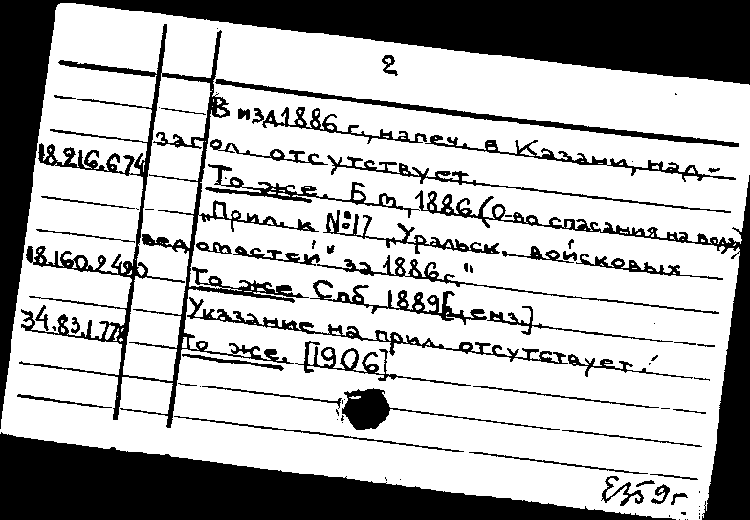 2
В изд. 1886 г., напеч. в Казани, над-
загол. отсутствует.
18.216.674 То же. Б.м., 1886 (О-во спасания на водах)
"Прил. к №17 "Уральск. войсковых
ведомостей" за 1886 г."
18.160.2.490 То же. Спб., 1889 [ценз.].
Указание на прил. отсутствует.
34.83.1.778 То же. [1906].
59 г.